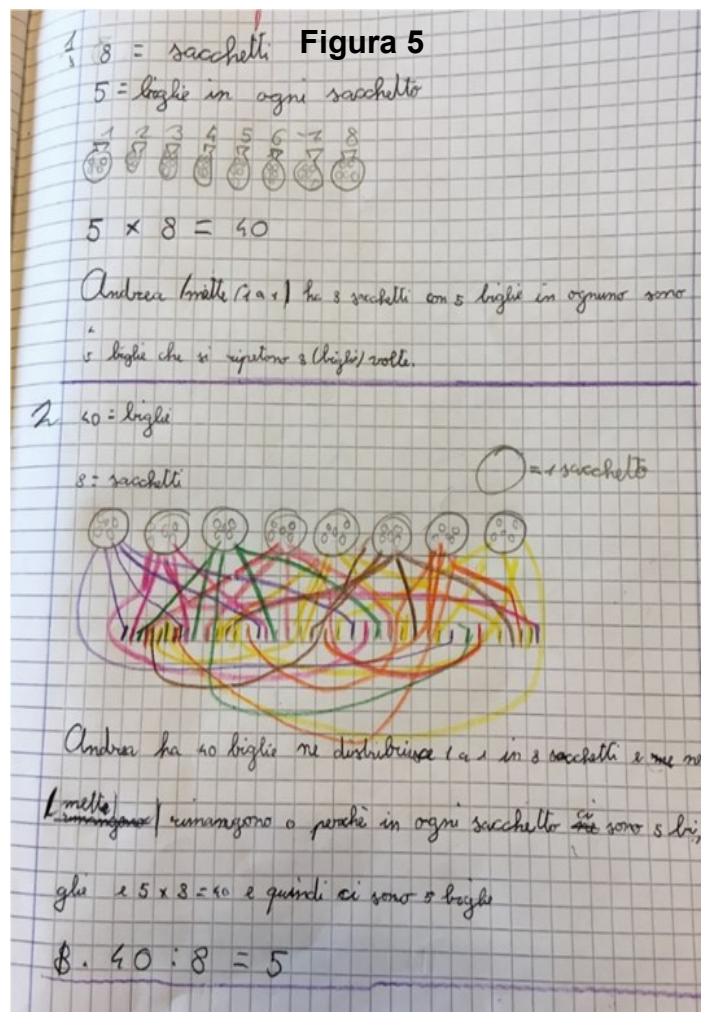 Figura 5
1 8 = sacchetti
5 = biglie in ogni sacchetto
1 2 3 4 5 6 7 8
5 × 8 = 40
Andrea (mette (1 a 1) ha 8 sacchetti con 5 biglie in ognuno sono
5 biglie che si ripetono 8 (biglie) volte.
2 40 = biglie
= 1 sacchetto
8 = sacchetti
Andrea ha 40 biglie ne distribuisce 1 a 1 in 8 sacchetti e ne
(mette)
rimangono 0 perchè in ogni sacchetto ci sono 5 bi,
glie e 5 x 8 = 40 e quindi ci sono 5 biglie
. 40 : 8 = 5